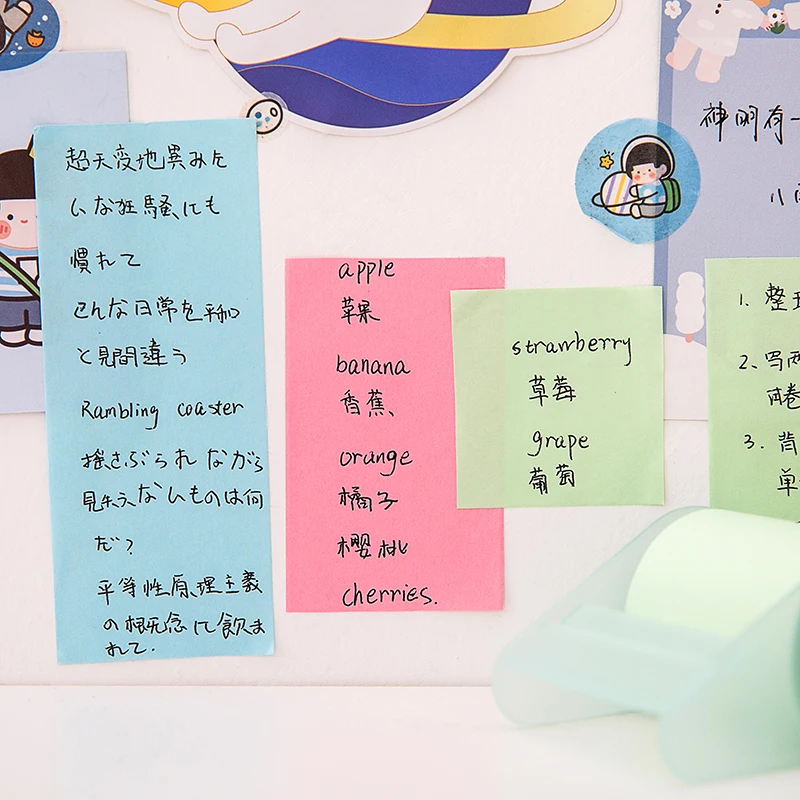 超天変地異みた
いな狂騒にも
慣れて
こんな日常を平和
と見間違う
Rambling coaster
揺さぶられながら
見失えないものは何
だ？
平等性原理主義
の概念に飲ま
れて.
apple
苹果
banana
香蕉、
orange
橘子
樱桃
cherries.
strawberry
草莓
grape
葡萄
神明有一
1. 整
2、写两
3. 背
单